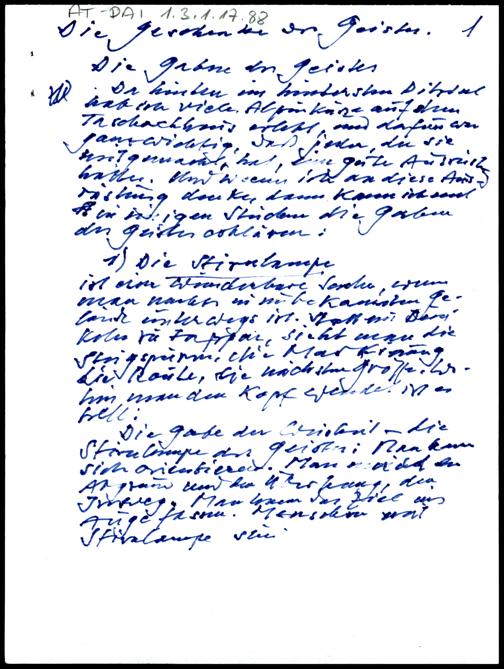 AT-DAI 1.3.1.17.88
Die Geschenke des Geistes. 1
Die Gaben des Geistes
Da hinten im hintersten Pitztal
hab ich viele Alpinkurse auf dem
Taschachhaus erlebt, und dafür war
ganz wichtig, daß jeder, der sie
mitgemacht hat, eine gute Ausrüst
hatte. Und wenn ich an diese Aus
rüstung denke, dann kann ich auch
in einigen Stücken die Gaben
des Geistes erklären:
1) Die Stirnlampe
ist eine wunderbare Sache, wenn
man nachts in unbekanntem Ge-
lände unterwegs ist. Statt im Dun
keln zu tappen, sieht man die
Steigspuren, die Markierung
die Route, die nächsten Griffe. Wo-
hin man den Kopf wendet ist es
hell:
Die Gabe der Weisheit - die
Stirnlampe des Geistes: Man kann
sich orientieren. Man meidet den
Abgrund und die, den
Irrweg. Man kann das Ziel ins
Auge fassen. Menschen mit
Stirnlampe sein